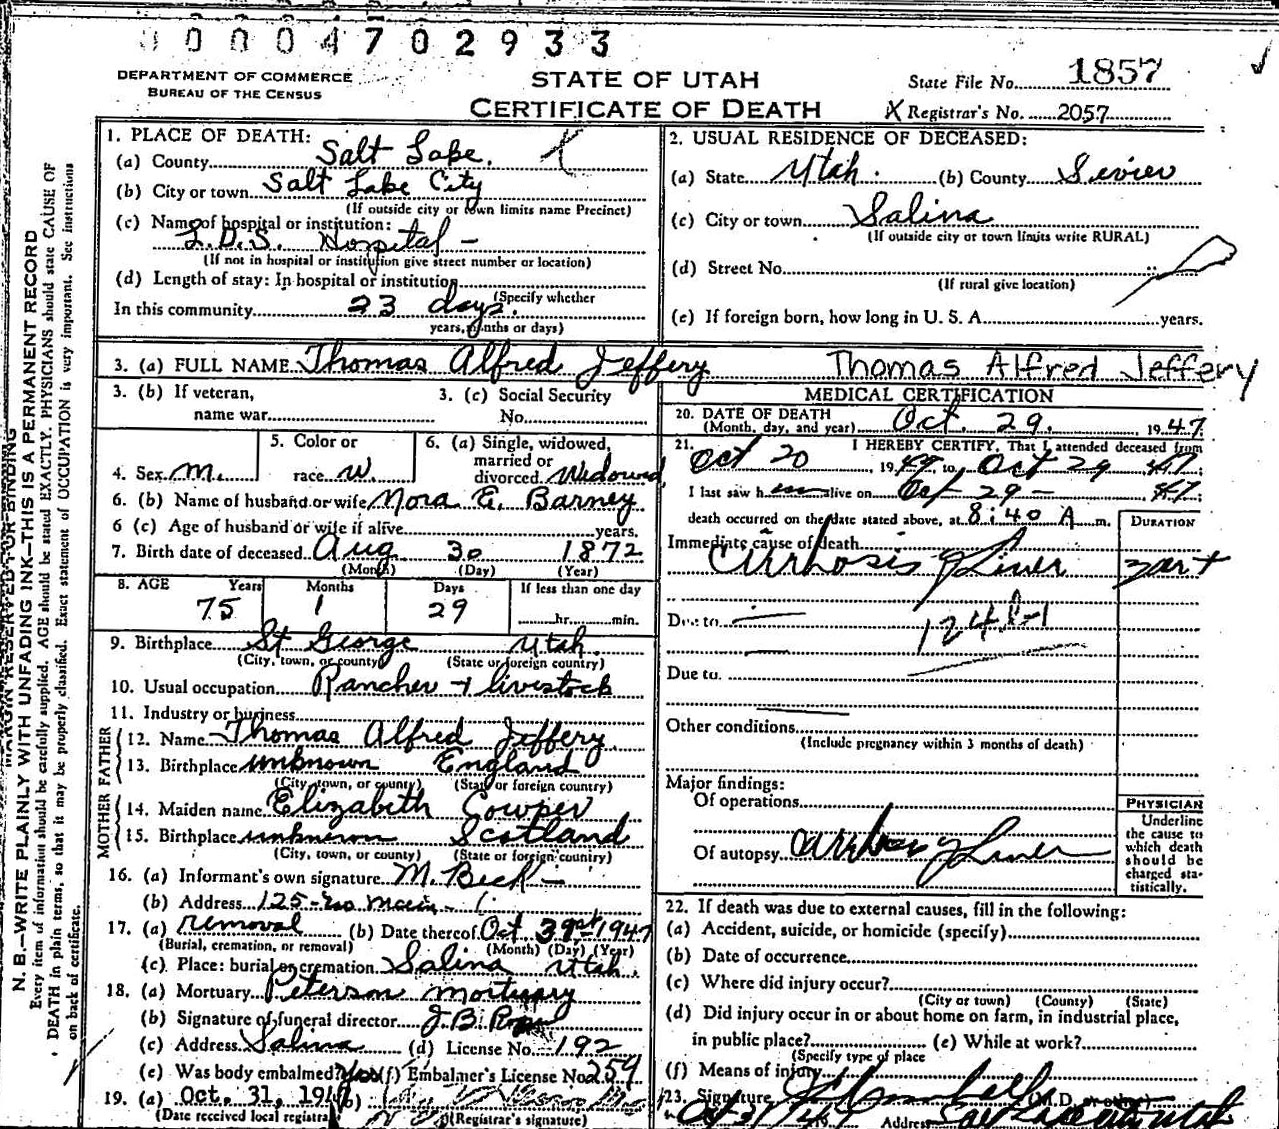 00004702933
DEPARTMENT OF COMMERCE
BUREAU OF THE CENSUS
STATE OF UTAH
CERTIFICATE OF DEATH
State File No. 1857
X Registrar's No. 2057
1. PLACE OF DEATH:
(a) County Salt Lake.
(b) City or town Salt Lake City
(If outside city or town limits name Precinct)
(c) Name of hospital or institution:
L.D.S. Hospital -
(If not in hospital or institution give street number or location)
(d) Length of stay: In hospital or institution
(Specify whether
In this community 23 days.
years, months or days)
2. USUAL RESIDENCE OF DECEASED:
(a) State Utah. (b) County Sevier
(c) City or town Salina
(If outside city or town limits write RURAL)
(d) Street No.
(If rural give location)
(e) If foreign born, how long in U. S. A. years.
3. (a) FULL NAME Thomas Alfred Jeffery Thomas Alfred Jeffery
3. (b) If veteran, name war
3. (c) Social Security No.
4. Sex m.
5. Color or race w.
6. (a) Single, widowed, married or divorced Widowed
6. (b) Name of husband or wife Nora E. Barney
6 (c) Age of husband or wife if alive years.
7. Birth date of deceased Aug 30 1872
(Month) (Day) (Year)
8. AGE Years Months Days If less than one day
75 1 29 hr. min.
9. Birthplace St George Utah.
(City, town, or county) (State or foreign country)
10. Usual occupation Rancher + livestock
11. Industry or business
FATHER
12. Name Thomas Alfred Jeffery
13. Birthplace unknown England
(City, town, or county) (State or foreign country)
MOTHER
14. Maiden name Elizabeth Cowper
15. Birthplace unknown Scotland
(City, town, or county) (State or foreign country)
16. (a) Informant's own signature M. Beck -
(b) Address 125 - no main -
17. (a) removal (b) Date thereof Oct 1947
(Burial, cremation, or removal) (Month) (Day) (Year)
(c) Place: burial or cremation Salina Utah.
18. (a) Mortuary Peterson mortuary
(b) Signature of funeral director J.B.
(c) Address Salina (d) License No. 192
(e) Was body embalmed? yes (f) Embalmer's License No. 259
19. (a) Oct. 31, 194 (b)
(Date received local registrar) (Registrar's signature)
MEDICAL CERTIFICATION
20. DATE OF DEATH
(Month, day, and year) Oct. 29. 1947.
21. I HEREBY CERTIFY, That I attended deceased from
Oct 20, 1947 to Oct 29 47;
I last saw h alive on Oct 29 - 47;
death occurred on the date stated above, at 8:40 A m.
DURATION
Immediate cause of death
Cirrhosis of Liver
Due to
124 b-1
Due to
Other conditions
(Include pregnancy within 3 months of death)
Major findings:
Of operations
Of autopsy cirrhosis of Liver
PHYSICIAN
Underline
the cause to
which death
should be
charged sta-
tistically.
22. If death was due to external causes, fill in the following:
(a) Accident, suicide, or homicide (specify)
(b) Date of occurrence
(c) Where did injury occur?
(City or town) (County) (State)
(d) Did injury occur in or about home on farm, in industrial place,
in public place? (e) While at work?
(Specify type of place
(f) Means of injury
23. Signature (M.D. or other)
Oct 31 1947 Address Salt Lake City Utah
MARGIN RESERVED FOR BINDING
N. B.—WRITE PLAINLY WITH UNFADING INK—THIS IS A PERMANENT RECORD
Every item of information should be carefully supplied. AGE should be stated EXACTLY. PHYSICIANS should state CAUSE OF
DEATH in plain terms, so that it may be properly classified. Exact statement of OCCUPATION is very important. See instructions
on back of certificate.